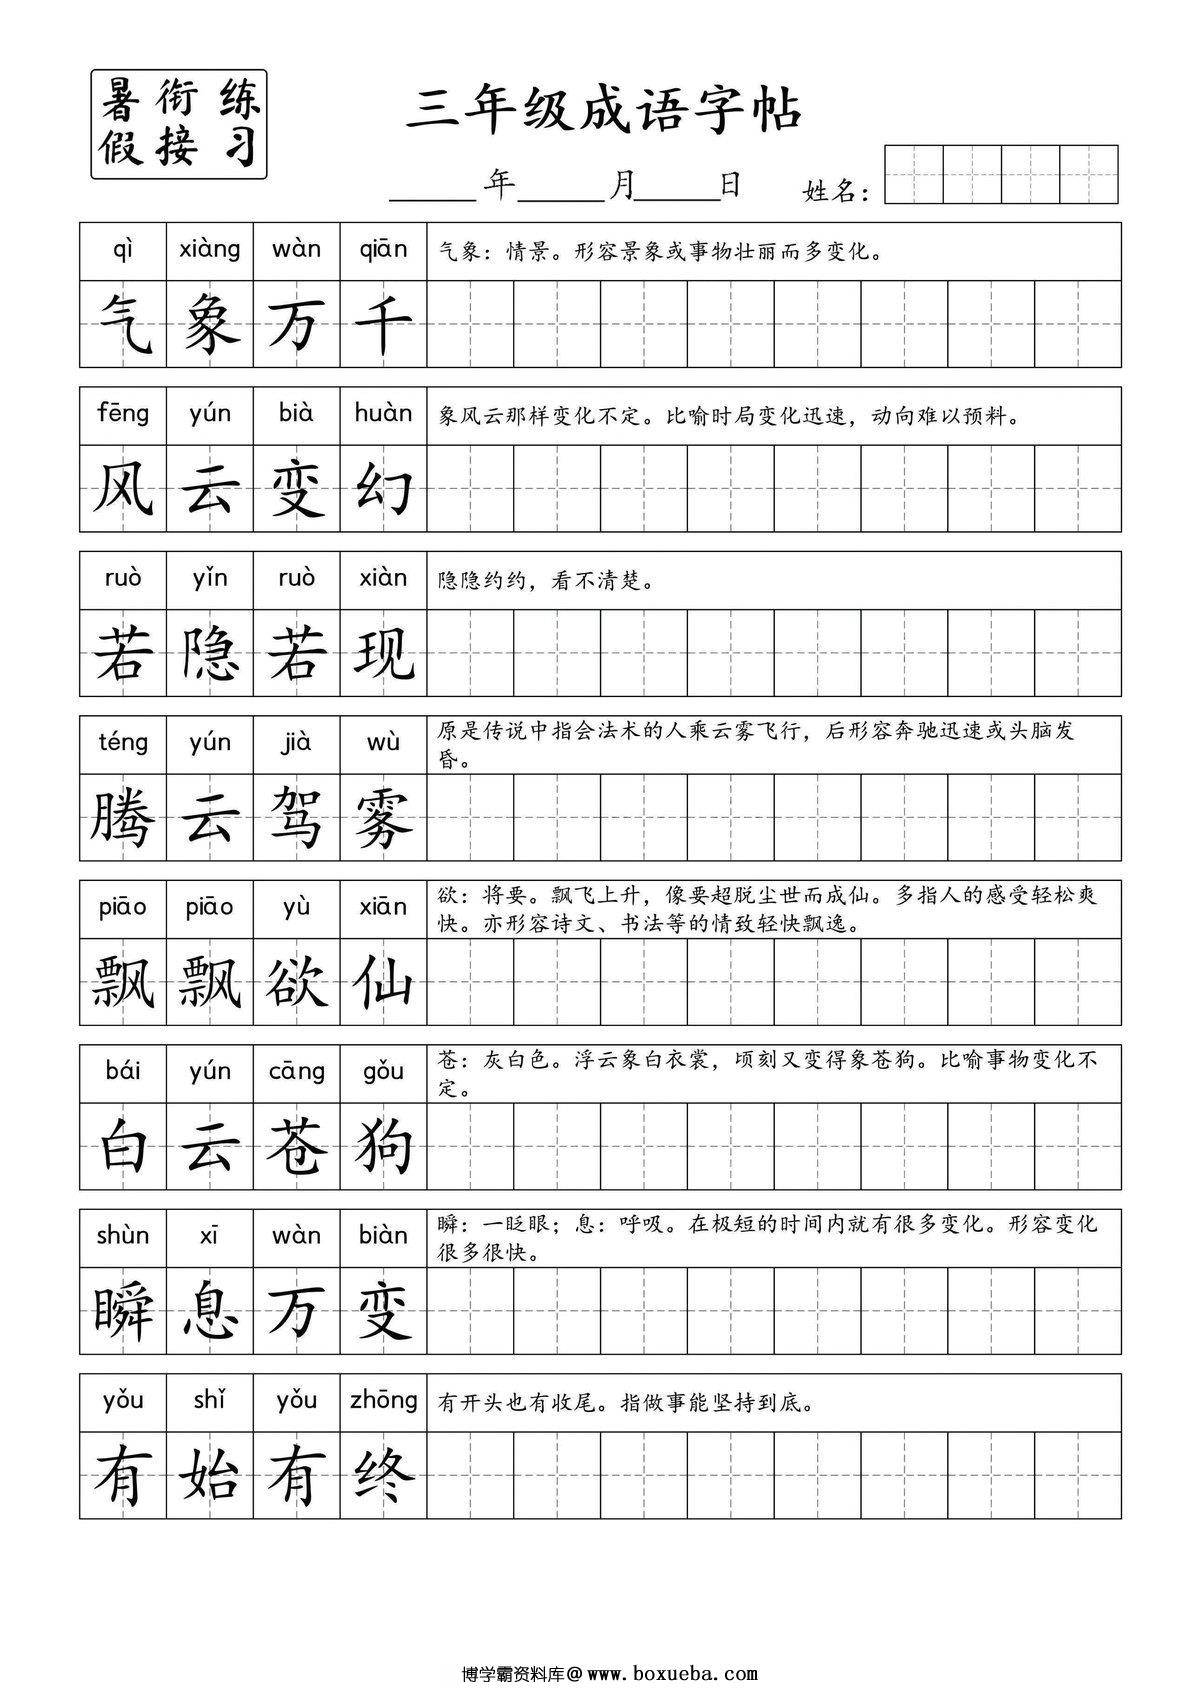 暑 衔 练
假 接 习
三年级成语字帖
______年______月______日 姓名：
qì xiàng wàn qiān 气象：情景。形容景象或事物壮丽而多变化。
气 象 万 千
fēng yún bià huàn 象风云那样变化不定。比喻时局变化迅速，动向难以预料。
风 云 变 幻
ruò yǐn ruò xiàn 隐隐约约，看不清楚。
若 隐 若 现
téng yún jià wù 原是传说中指会法术的人乘云雾飞行，后形容奔驰迅速或头脑发
昏。
腾 云 驾 雾
piāo piāo yù xiān 欲：将要。飘飞上升，像要超脱尘世而成仙。多指人的感受轻松爽
快。亦形容诗文、书法等的情致轻快飘逸。
飘 飘 欲 仙
bái yún cāng gǒu 苍：灰白色。浮云象白衣裳，顷刻又变得象苍狗。比喻事物变化不
定。
白 云 苍 狗
shùn xī wàn biàn 瞬：一眨眼；息：呼吸。在极短的时间内就有很多变化。形容变化
很多很快。
瞬 息 万 变
yǒu shǐ yǒu zhōng 有开头也有收尾。指做事能坚持到底。
有 始 有 终
博学霸资料库@ www.boxueba.com